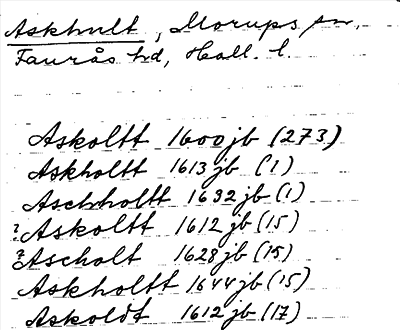 Askhult, Morups sn,
Faurås hd, Hall. l.
Askoltt 1600 jb (273)
Askholtt 1613 jb (1)
Aschholtt 1632 jb (1)
? Askoltt 1612 jb (15)
? Ascholt 1628 jb (15)
Askholtt 1644 jb (15)
Askoldt 1612 jb (17)